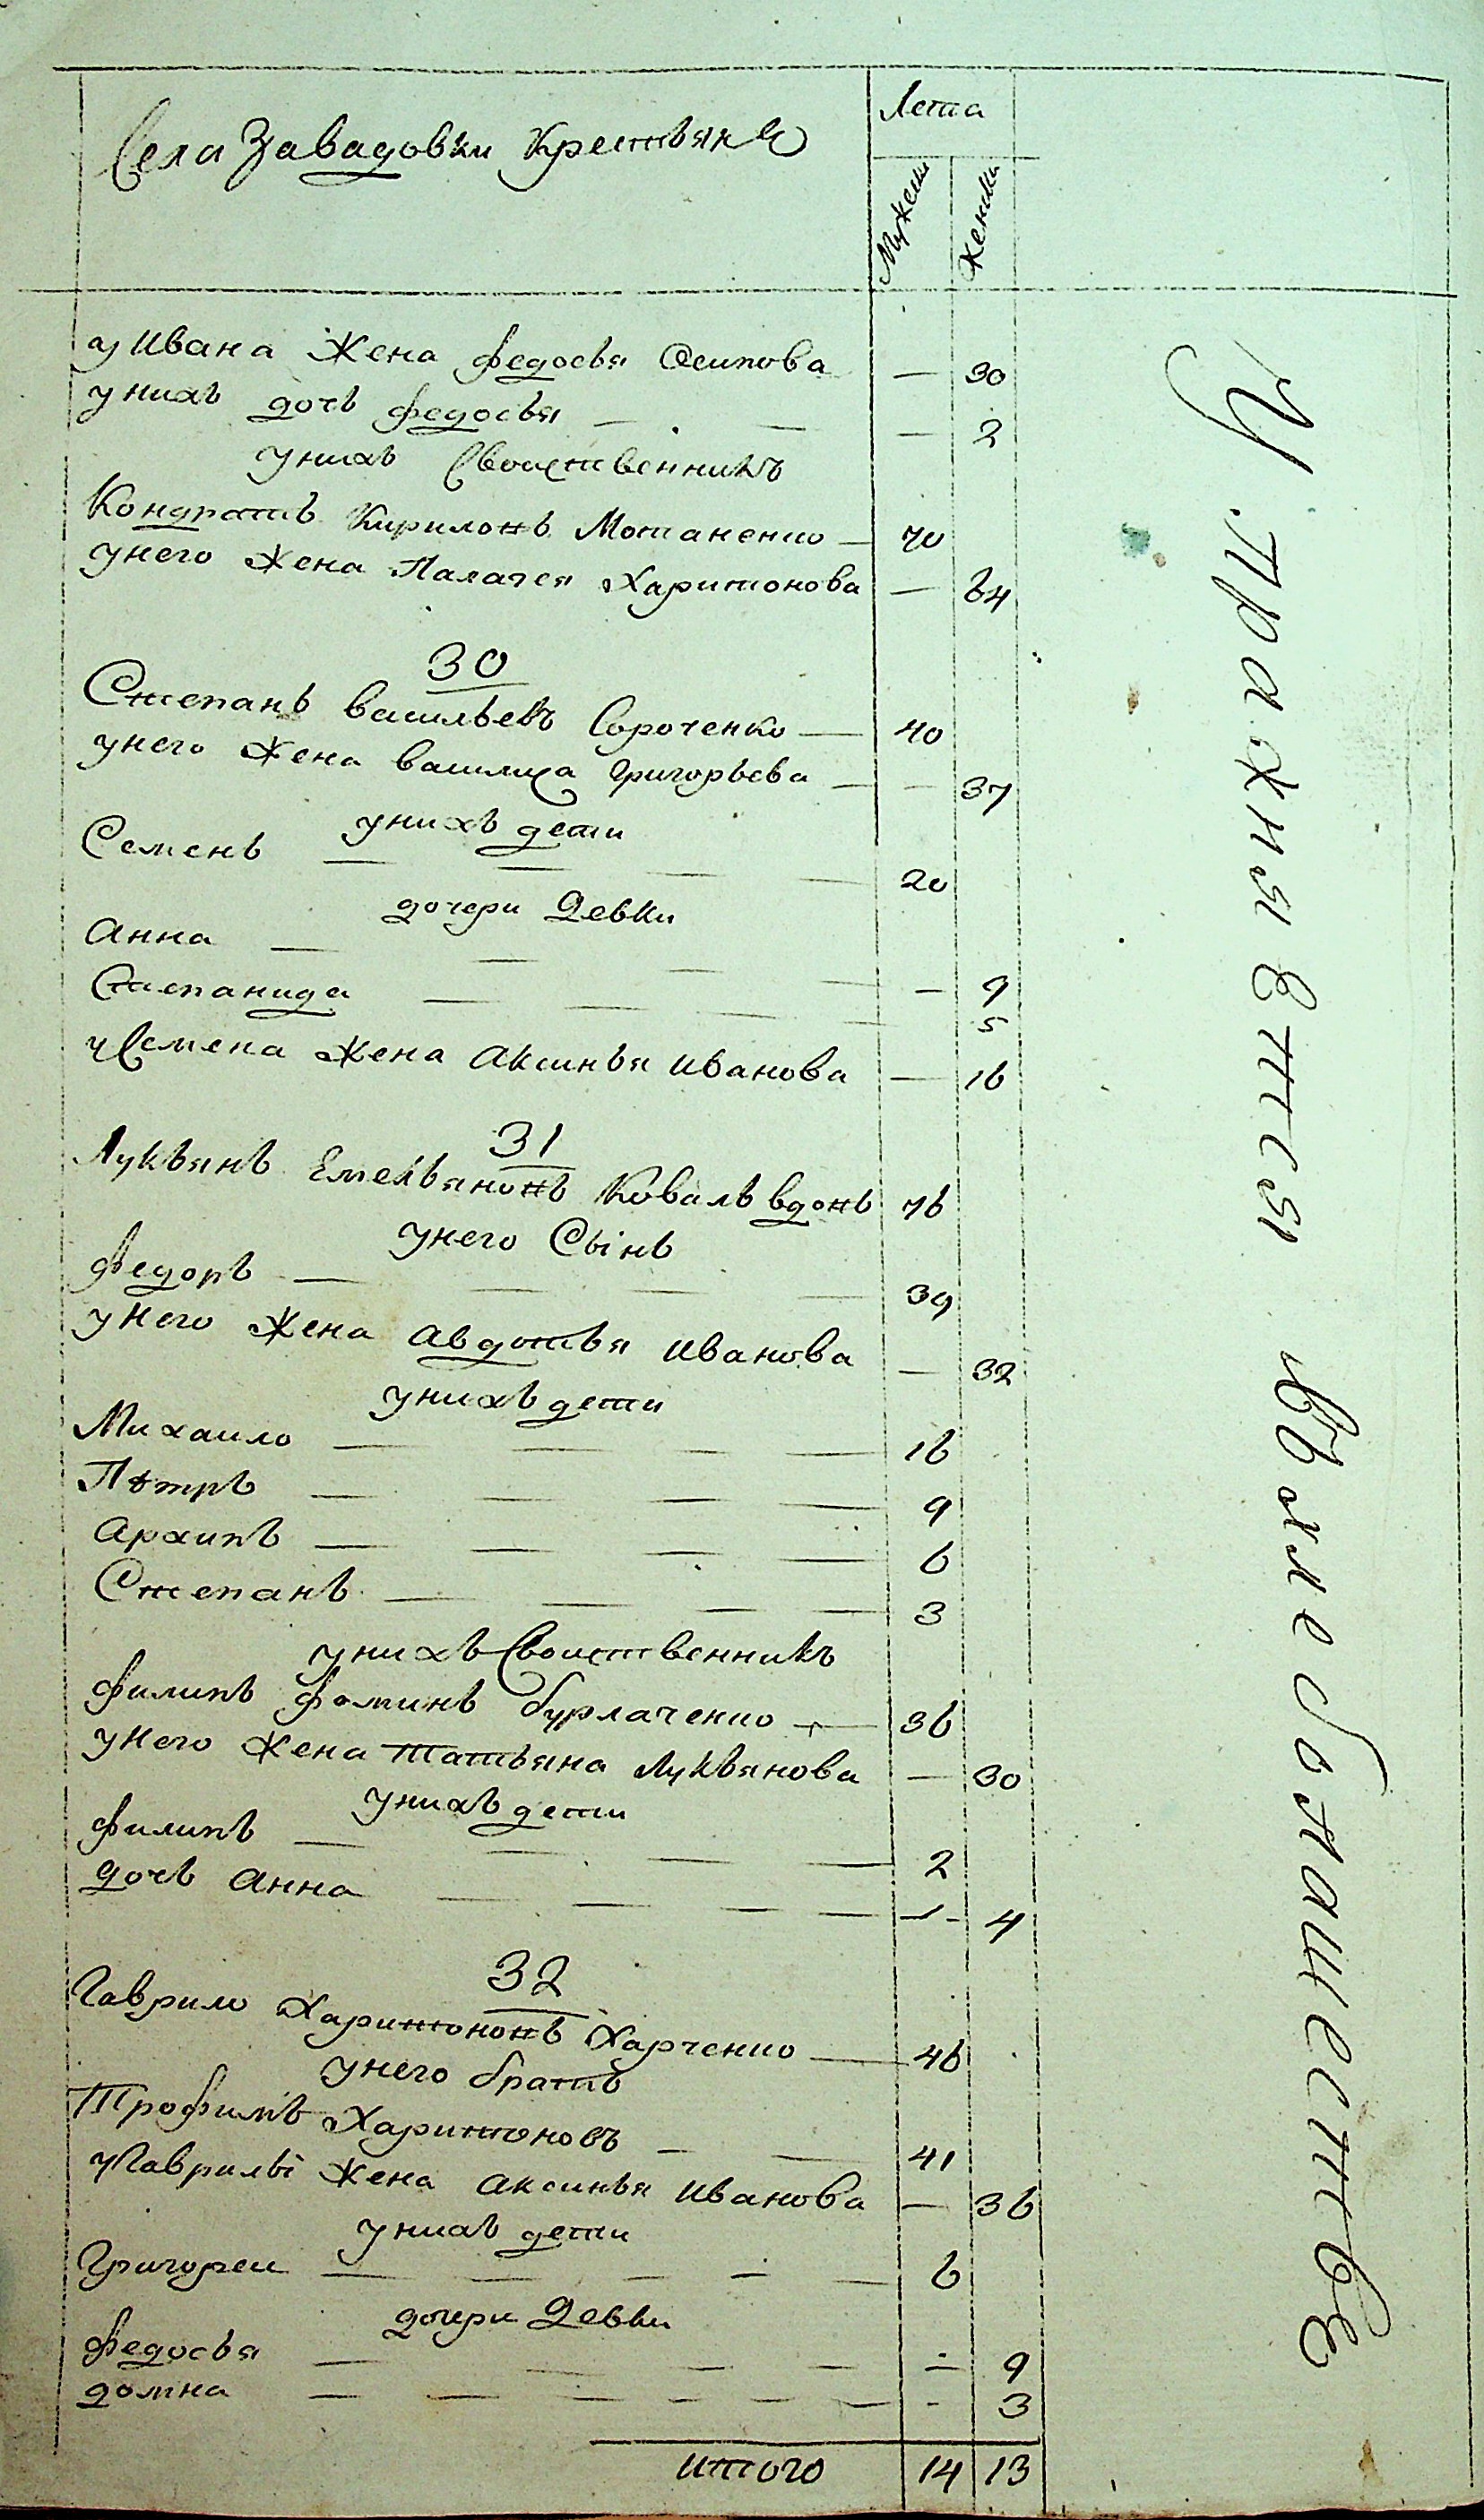 Села Завадовки Крестьяне
Лета
Мужеска
Женска
у Ивана Жена федосья Осипова — 30
у нихъ дочь федосья — 2
у нихъ Свойственникъ
Кондратъ Кириловъ Мотаненко — 70
у него Жена Палагея Харитонова — 64
30
Степанъ васильевъ Сороченко — 40
у него Жена василиса Григорьева — 37
у нихъ дети
Семенъ — 20
дочери Девки
Анна — 9
Степанида — 5
у Семена Жена Аксинья Иванова — 16
31
Лукьянъ Емельяновъ Коваль вдовъ 76
у него Сынъ
Федоръ — 39
у него Жена Авдотья Иванова — 32
у нихъ дети
Михаило — 16
Пётръ — 9
Архипъ — 6
Степанъ — 3
у нихъ Свойственникъ
филипъ фоминъ бурлаченко — 36
у него Жена Татьяна Лукьянова — 30
у нихъ дети
филипъ — 2
дочь Анна — 4
32
Гаврило Харитоновъ Харченко — 46
у него братъ
Трофимъ Харитоновъ — 41
у Гаврилы Жена Аксинья Иванова — 36
у нихъ дети
Григореи — 6
дочери Девки
федосья — 9
домна — 3
итого 14 13
Упражняется въ хлебопашестве